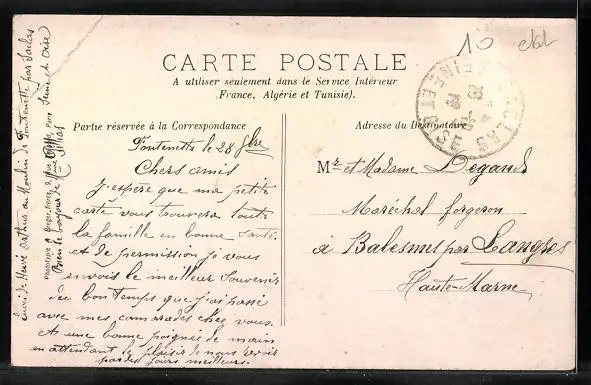 10
CARTE POSTALE
A utiliser seulement dans le Service Intérieur
(France, Algérie et Tunisie).
Partie réservée à la Correspondance
Adresse du Destinataire
Fontenette le 28 9bre
Chers amis
j'espère que ma petite
carte vous trouvera toute
la famille en bonne Santé.
et de permission je vous
envois le meilleur Souvenir
du bon temps que j'ai passé
avec mes camarades chez vous.
Et une bonne poignée de main
en attendant le plaisir de nous revoir
par des jours meilleurs.
Mr et Madame Degand
Maréchal forgeron
à Balesmes par Langres
Haute-Marne
envoi de Hervé au Moulin de Fontenette par Saclas
Seine et Oise
Bien le bonjour de